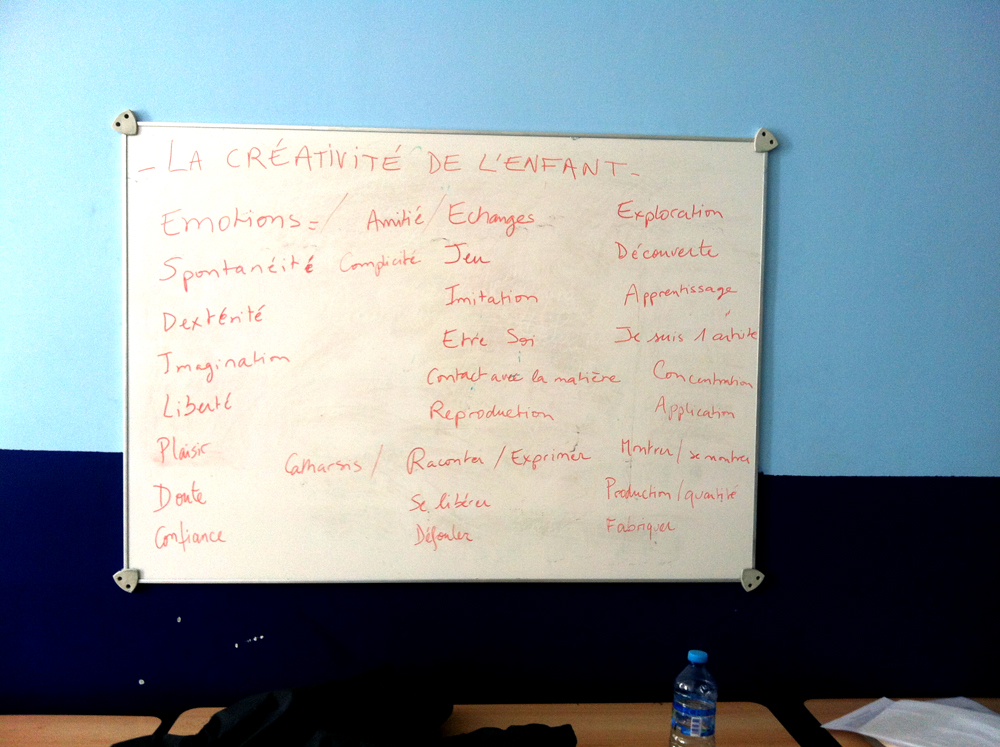 - LA CRÉATIVITÉ DE L'ENFANT -
Emotions = / Amitié / Echanges Exploration
Spontanéité Complicité Jeu Découverte
Dextérité Imitation Apprentissage
Imagination Etre Soi Je suis 1 artiste
Liberté Contact avec la matière Concentration
Plaisir Reproduction Application
Catharsis / Raconter / Exprimer Montrer / se montrer
Doute Se libérer Production / quantité
Confiance Défouler Fabriquer